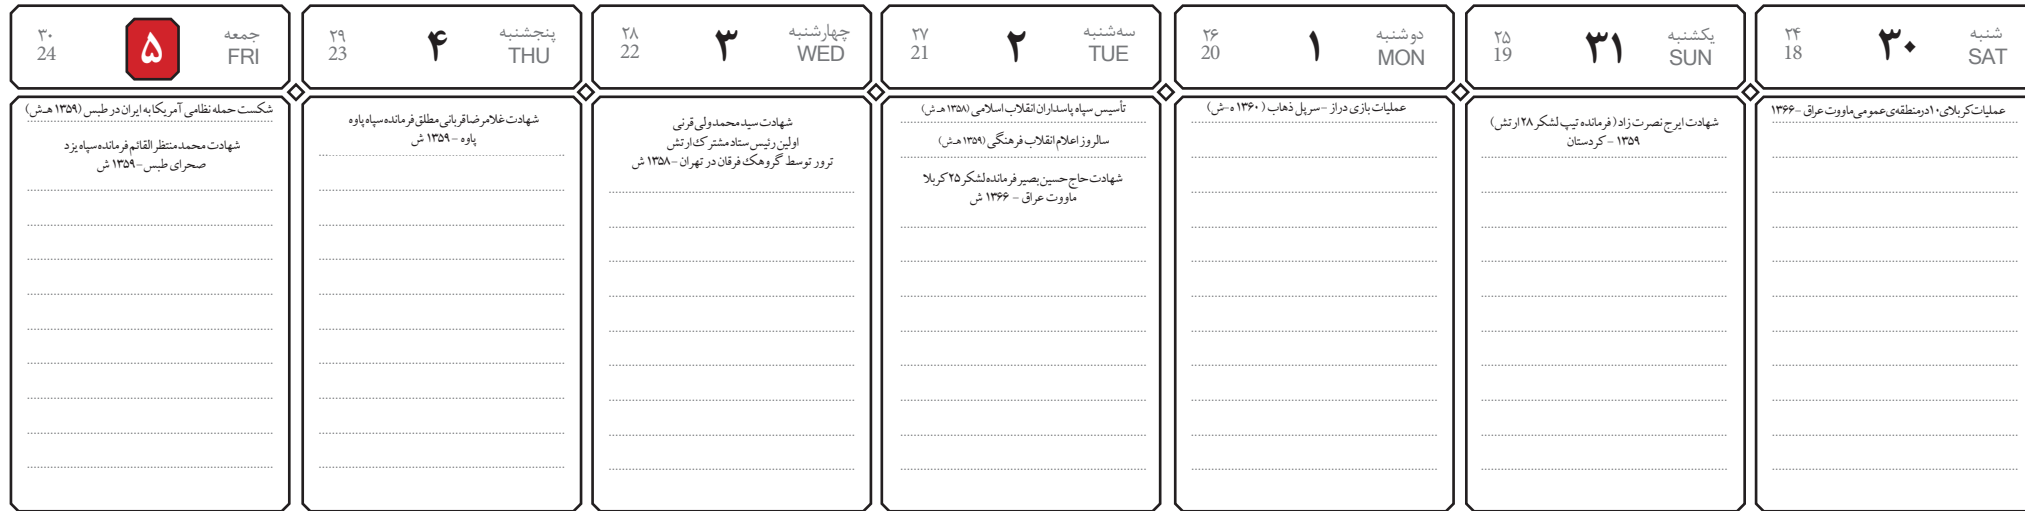 شنبه
SAT
۳۰
۲۴
18
عملیات کربلای۱۰ درمنطقه‌ی عمومی ماووت عراق -۱۳۶۶
یکشنبه
SUN
۳۱
۲۵
19
شهادت ایرج نصرت زاد (فرمانده تیپ لشکر ۲۸ ارتش)
۱۳۵۹ - کردستان
دوشنبه
MON
۱
۲۶
20
عملیات بازی دراز -سرپل ذهاب (۱۳۶۰ ه-ش)
سه‌شنبه
TUE
۲
۲۷
21
تأسیس سپاه پاسداران انقلاب اسلامی (۱۳۵۸ هـ ش)
سالروز اعلام انقلاب فرهنگی (۱۳۵۹ هـش)
شهادت حاج حسین بصیر فرمانده لشکر ۲۵ کربلا
ماووت عراق - ۱۳۶۶ ش
چهارشنبه
WED
۳
۲۸
22
شهادت سید محمد ولی قرنی
اولین رئیس ستاد مشترک ارتش
ترور توسط گروهک فرقان در تهران -۱۳۵۸ ش
پنجشنبه
THU
۴
۲۹
23
شهادت غلامرضا قربانی مطلق فرمانده سپاه پاوه
پاوه - ۱۳۵۹ ش
جمعه
FRI
۵
۳۰
24
شکست حمله نظامی آمریکا به ایران در طبس (۱۳۵۹ هـ.ش)
شهادت محمد منتظر القائم فرمانده سپاه یزد
صحرای طبس-۱۳۵۹ ش